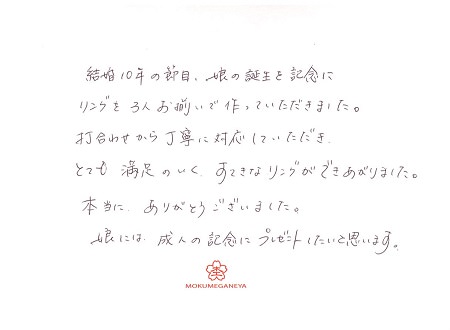 結婚10年の節目、娘の誕生を記念に
リングを3人お揃いで作っていただきました。
打合わせから丁寧に対応していただき、
とても満足のいく、すてきなリングができあがりました。
本当に、ありがとうございました。
娘には、成人の記念にプレゼントしたいと思います。
MOKUMEGANEYA